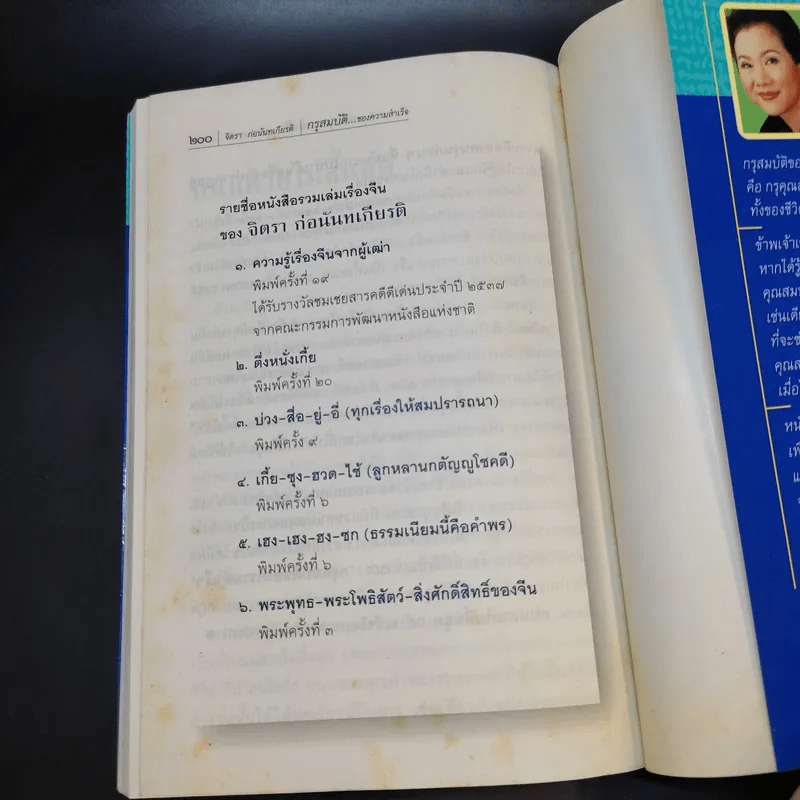 ๒๐๐ | จิตรา ก่อนันทเกียรติ | กรุสมบัติ...ของความสำเร็จ
รายชื่อหนังสือรวมเล่มเรื่องจีน
ของ จิตรา ก่อนันทเกียรติ
๑. ความรู้เรื่องจีนจากผู้เฒ่า
พิมพ์ครั้งที่ ๑๙
ได้รับรางวัลชมเชยสารคดีดีเด่นประจำปี ๒๕๓๗
จากคณะกรรมการพัฒนาหนังสือแห่งชาติ
๒. ตึ่งหนั่งเกี้ย
พิมพ์ครั้งที่ ๒๐
๓. บ่วง-สื่อ-ยู่-อี่ (ทุกเรื่องให้สมปรารถนา)
พิมพ์ครั้ง ๙
๔. เกี้ย-ซุง-ฮวด-ไช้ (ลูกหลานกตัญญูโชคดี)
พิมพ์ครั้งที่ ๖
๕. เฮง-เฮง-ฮง-ซก (ธรรมเนียมนี้คือคำพร)
พิมพ์ครั้งที่ ๖
๖. พระพุทธ-พระโพธิสัตว์-สิ่งศักดิ์สิทธิ์ของจีน
พิมพ์ครั้งที่ ๓
กรุสมบัติของ
คือ กรุคุณ
ทั้งของชีวิต
ข้าพเจ้า
หากได้รู้
คุณสม
เช่นเดีย
ที่จะ
คุณส
เมื่อ